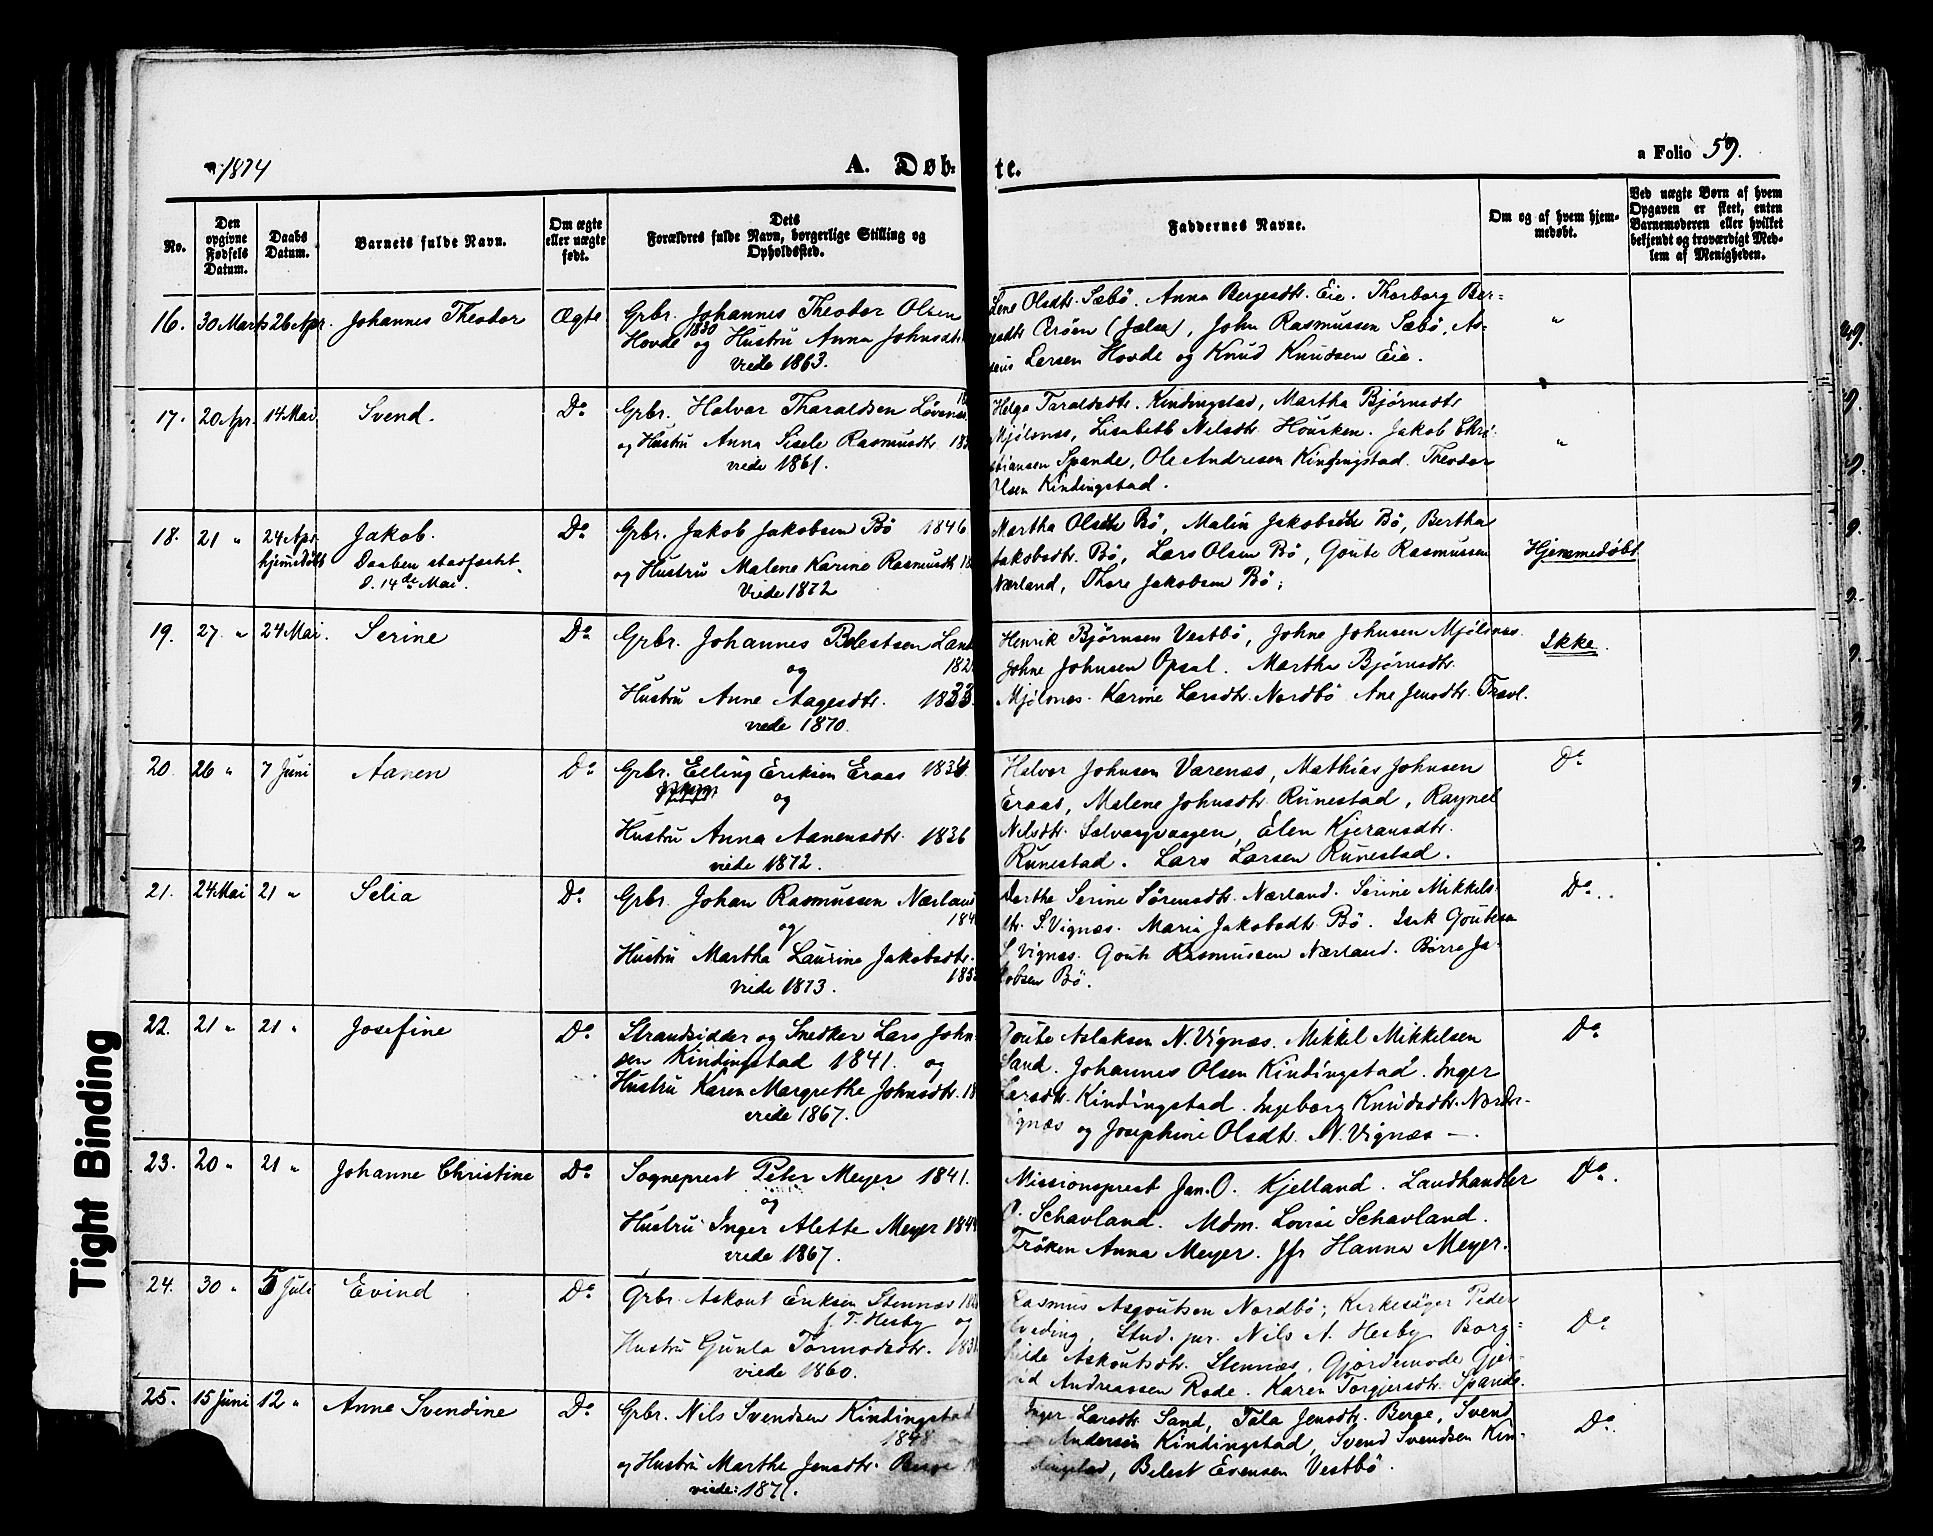 1874
A. Døb-
te.
a Folio 59.
No.
Den opgivne Fødsels Datum.
Daabs Datum.
Barnets fulde Navn.
Om ægte eller uægte født.
Dets Forældres fulde Navn, borgerlige Stilling og Opholdssted.
Faddernes Navne.
Om og af hvem hjem-
medøbt.
Ved uægte Børn af hvem
Opgaven er skeet, enten
Barnemoderen eller hvilket
bekjendt og troværdigt Med-
lem af Menigheden.
16. 30 Marts 26 Apr. Johannes Theodor Ægte
Grbr. Johannes Theodor Olsen
1830
Hovde og Hustru Anna Johnsdtr
viede 1863.
Lene Olsdtr. Sæbö. Anna Bergesdtr. Eie. Thorborg Ber-
gesdtr Aröen (Jælsa), John Rasmussen Sæbö, As-
Larsen Hovde og Knud Knudsen Eie. "
17. 20 Apr. 14 Mai. Svend. Do
Grbr. Halvor Tharaldsen Lövenæs
og Hustru Anna Sisele Rasmusdtr
viede 1861.
Helga Taraldsdtr. Kindingstad, Martha Bjørnsdtr
Mjølsnes, Lisabeth Nilsdtr. Housken. Jakob Chri-
stiansen Spande, Ole Andresen Kindingstad. Theodor
Olsen Kindingstad. "
18. 21 " 24 Apr. hjemmedöbt Jakob. Do
Daaben stadfæstet
d. 14de Mai.
Grbr. Jakob Jakobsen Bö 1846
og Hustru Malene Karine Rasmusdtr 18
Viede 1872
Martha Olsdtr Bö, Malin Jakobsdtr Bö, Bertha
Jakobsdtr. Bö, Lars Olsen Bö, Goute Rasmussen
Nærland, Thore Jakobsen Bö;
Hjemmedøbt
19. 27. " 24 Mai. Serine Do
Grbr. Johannes Belestsen Land
182
og
Hustru Anne Aagesdtr. 1833.
viede 1870.
Henrik Bjørnsen Vestbö, Johne Johnsen Mjölsnes.
Johne Johnsen Opsal. Martha Bjørnsdtr.
Mjölsnes. Karine Larsdtr. Nordbö Ane Jensdtr. Travl.
Ikke.
20. 26 " 7 Juni Aanen Do
Grbr. Elling Eriksen Eraas 1834
og
Hustru Anna Aanensdtr. 1836
viede 1872.
Halvor Johnsen Varenæs, Mathias Johnsen
Eraas, Malene Johnsdtr. Runestad, Raynel
Nilsdtr. Selvaagvaagen, Elen Kjeransdtr.
Runestad. Lars Larsen Runestad.
Do
21. 24 Mai 21 " Selia Do
Grbr. Johan Rasmussen Nærland
184
og
Hustru Martha Laurine Jakobsdtr.
185
Viede 1873.
Dorthe Serine Sörensdtr. Nærland. Serine Mikkels-
dtr. S. Vignæs. Maria Jakobsdtr. Bö. Isak Goutesen
S. Vignæs. Goute Rasmussen Nærland. Börre Ja-
kobsen Bö.
Do.
22. 21 " 21 " Josefine Do
Strandsidder og Snedker Lars John-
sen Kindingstad 1841. og
Hustru Karen Margrethe Johnsdtr. 18
viede 1867.
Goute Aslaksen N. Vignæs. Mikkel Mikkelsen
Sand. Johannes Olsen Kindingstad. Inger
Larsdtr. Kindingstad. Ingeborg Knudsdtr. Nordr-
Vignæs og Josephine Olsdtr. N. Vignæs —.
Do
23. 20 " 21 " Johanne Christine Do
Sogneprest Peter Meyer 1841.
og
Hustru Inger Alette Meyer 184
viede 1867.
Missionsprest Jan. O. Kjelland. Landhandler
O. Schavland. Mdm. Lovise Schavland.
Frøken Anna Meyer. Jfr Hanna Meyer.
Do.
24. 30 " 5 Juli Evind Do
Grbr. Askout Eriksen Stennæs 18
f. T. Hesby og
Hustru Gunla Tormodsdtr. 183
viede 1860.
Rasmus Asgoutsen Nordbö; Kirkesanger Peder
Hveding, Stud. jur. Nils A. Hesby Borg-
hilde Askoutsdtr. Stennæs, Gjordemoder Gjer-
Andreassen Rode. Karen Torgjersdtr. Spande.
Do
25. 15 Juni 12 " Anne Svendine Do
Grbr. Nils Svendsen Kindingstad
1848
og Hustru Marthe Jensdtr. Berge
viede: 1871.
Inger Larsdtr Sand, Tala Jensdtr. Berge, Svend
Andersen Kindingstad, Svend Svendsen Kin-
dingstad, Belest Evensen Vestbö.
Do.
Tight Binding